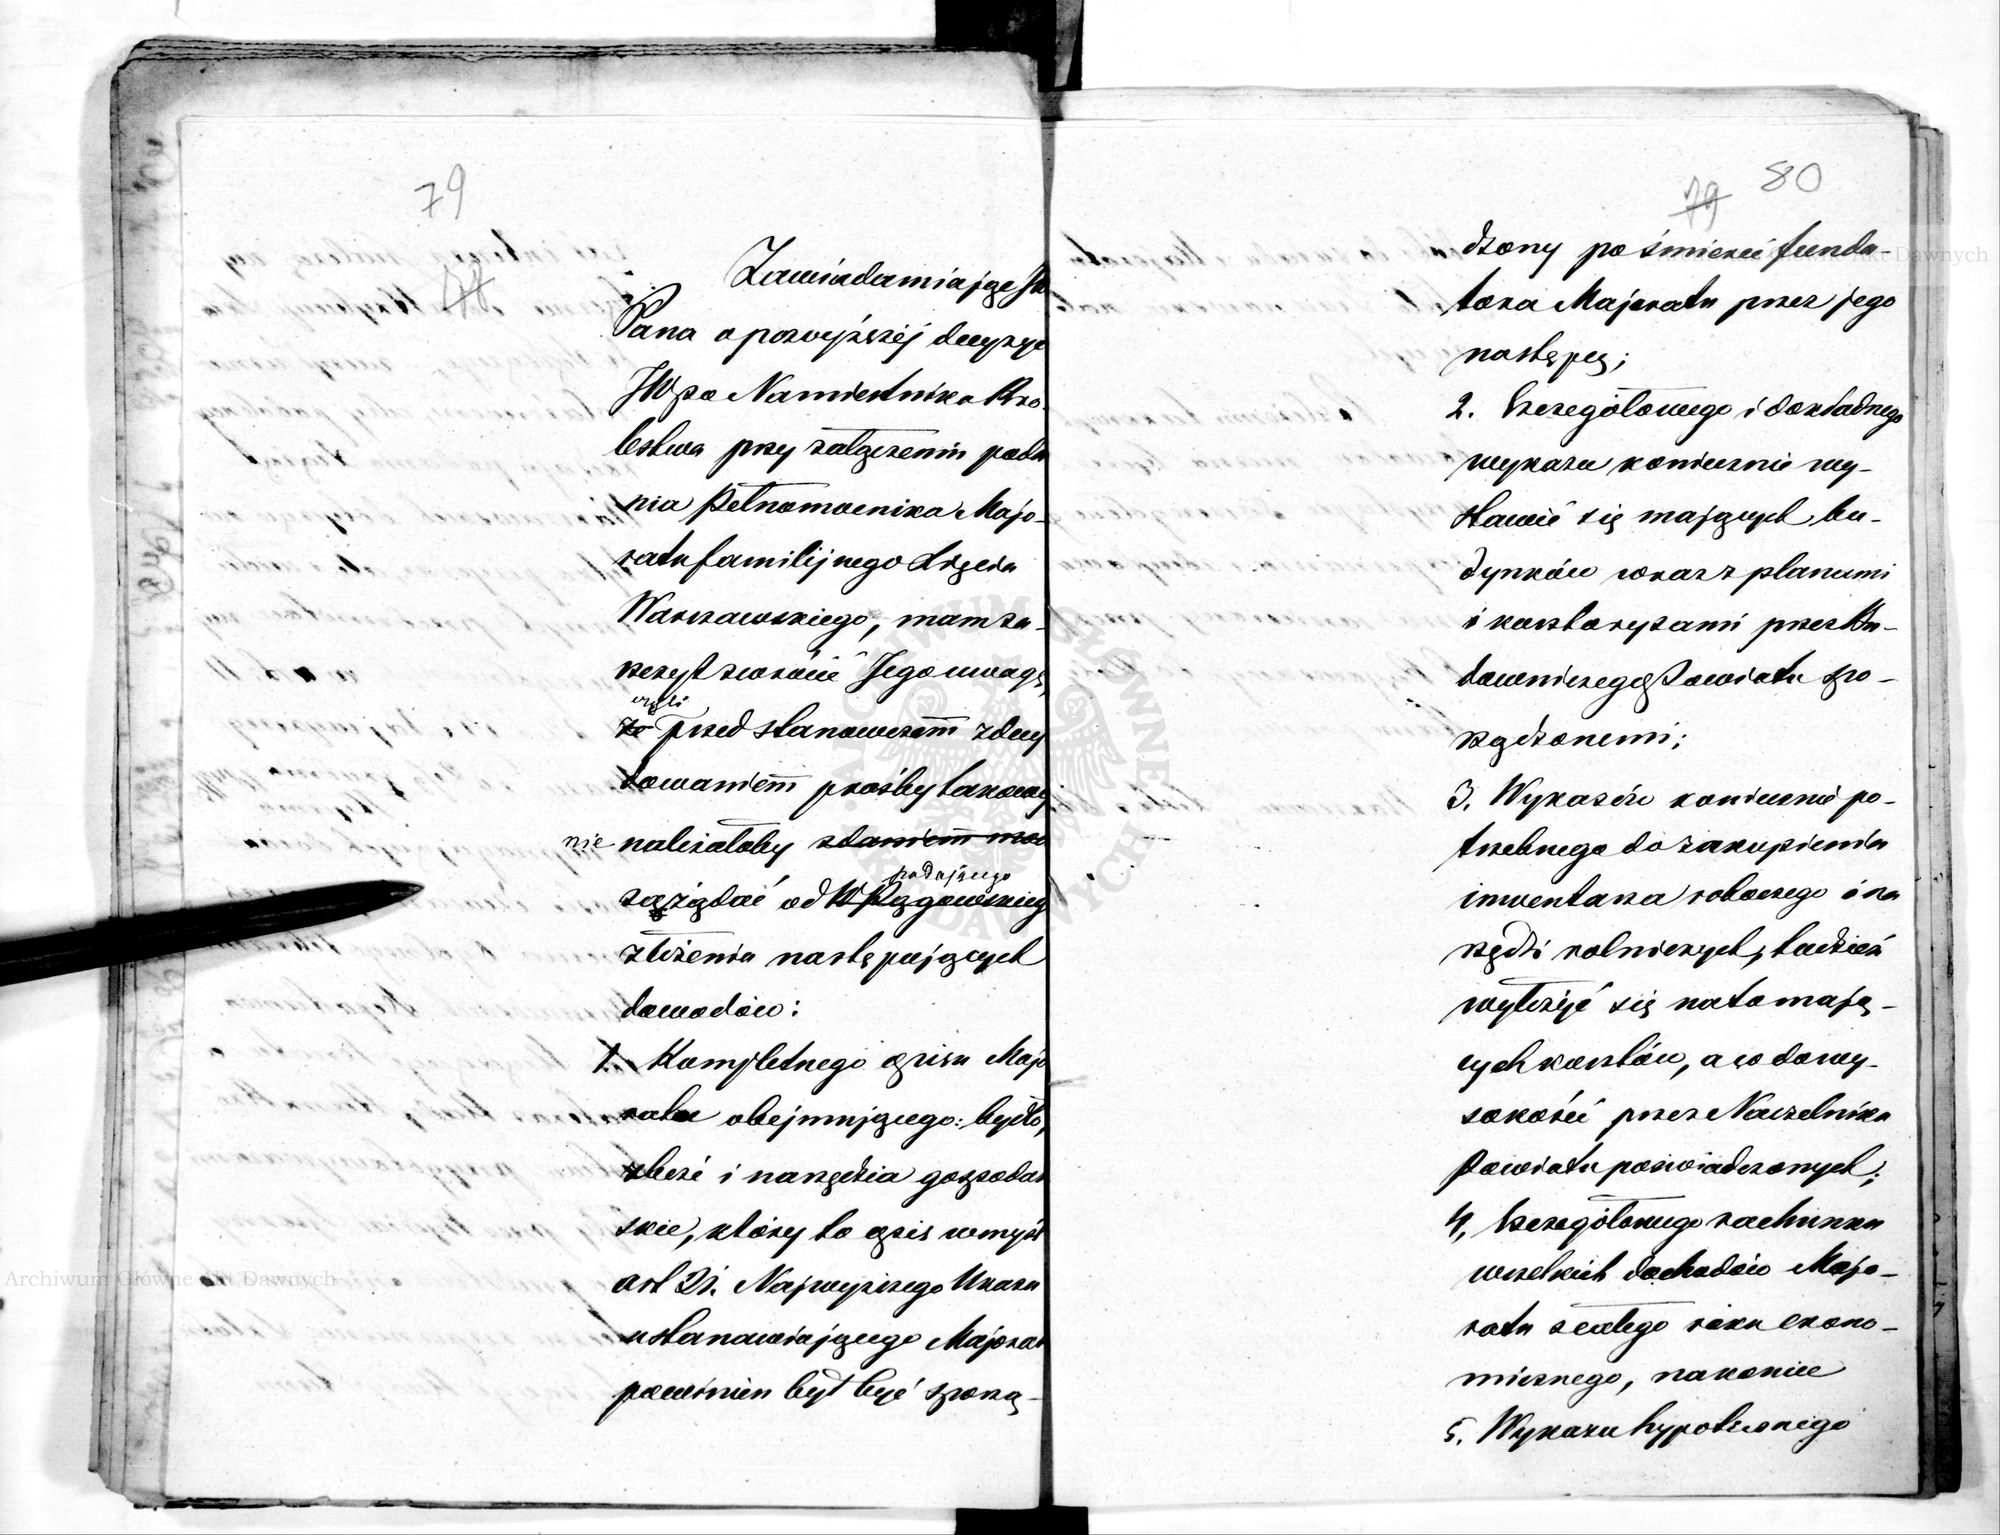 79
78
Zawiadamiając JW
Pana o powyższéj decyzyi
JWgo Namiestnika Kró-
lestwa przy załączeniu poda
nia Pełnomocnika Majo-
ratu familijnego Xięcia
Warszawskiego, mam za-
szczyt zwrócić Jego uwagę,
czyli
że przed stanowczem zdecy
dowaniem prośby takowej
nie należałoby zdaniem mo
podającego
zażądać od W Rzągowskieg
złożenia następujących
dowodów:
1. Kompletnego opisu Majo
ratu obejmującego: bydło,
zboże i narzędzia gospodar
skie, który to opis w myśl
art 21. Najwyższego Ukazu
ustanawiającego Majorat
powinien był być sporzą-
79 80
dzony po śmierci funda-
tora Majoratu przez jego
następcę;
2. Szczegółowego i dokładnego
wykazu koniecznie wy-
stawić się mających bu-
dynków wraz z planami
i kosztorysami przez Bu-
downiczego Powiatu spo-
rządzonemi;
3. Wykazów koniecznie po-
trzebnego do zakupienia
inwentarza roboczego i na
rzędzi rolniczych, tudzież
wyłożyć się na to mają-
cych kosztów, a co do wy-
sokości przez Naczelnika
Powiatu poświadczonych;
4, Szczegółowego rachunku
wszelkich dochodów Majo-
ratu z całego roku ekono-
micznego, nakoniec
5. Wykazu hypotecznego
Archiwum Główne Akt Dawnych